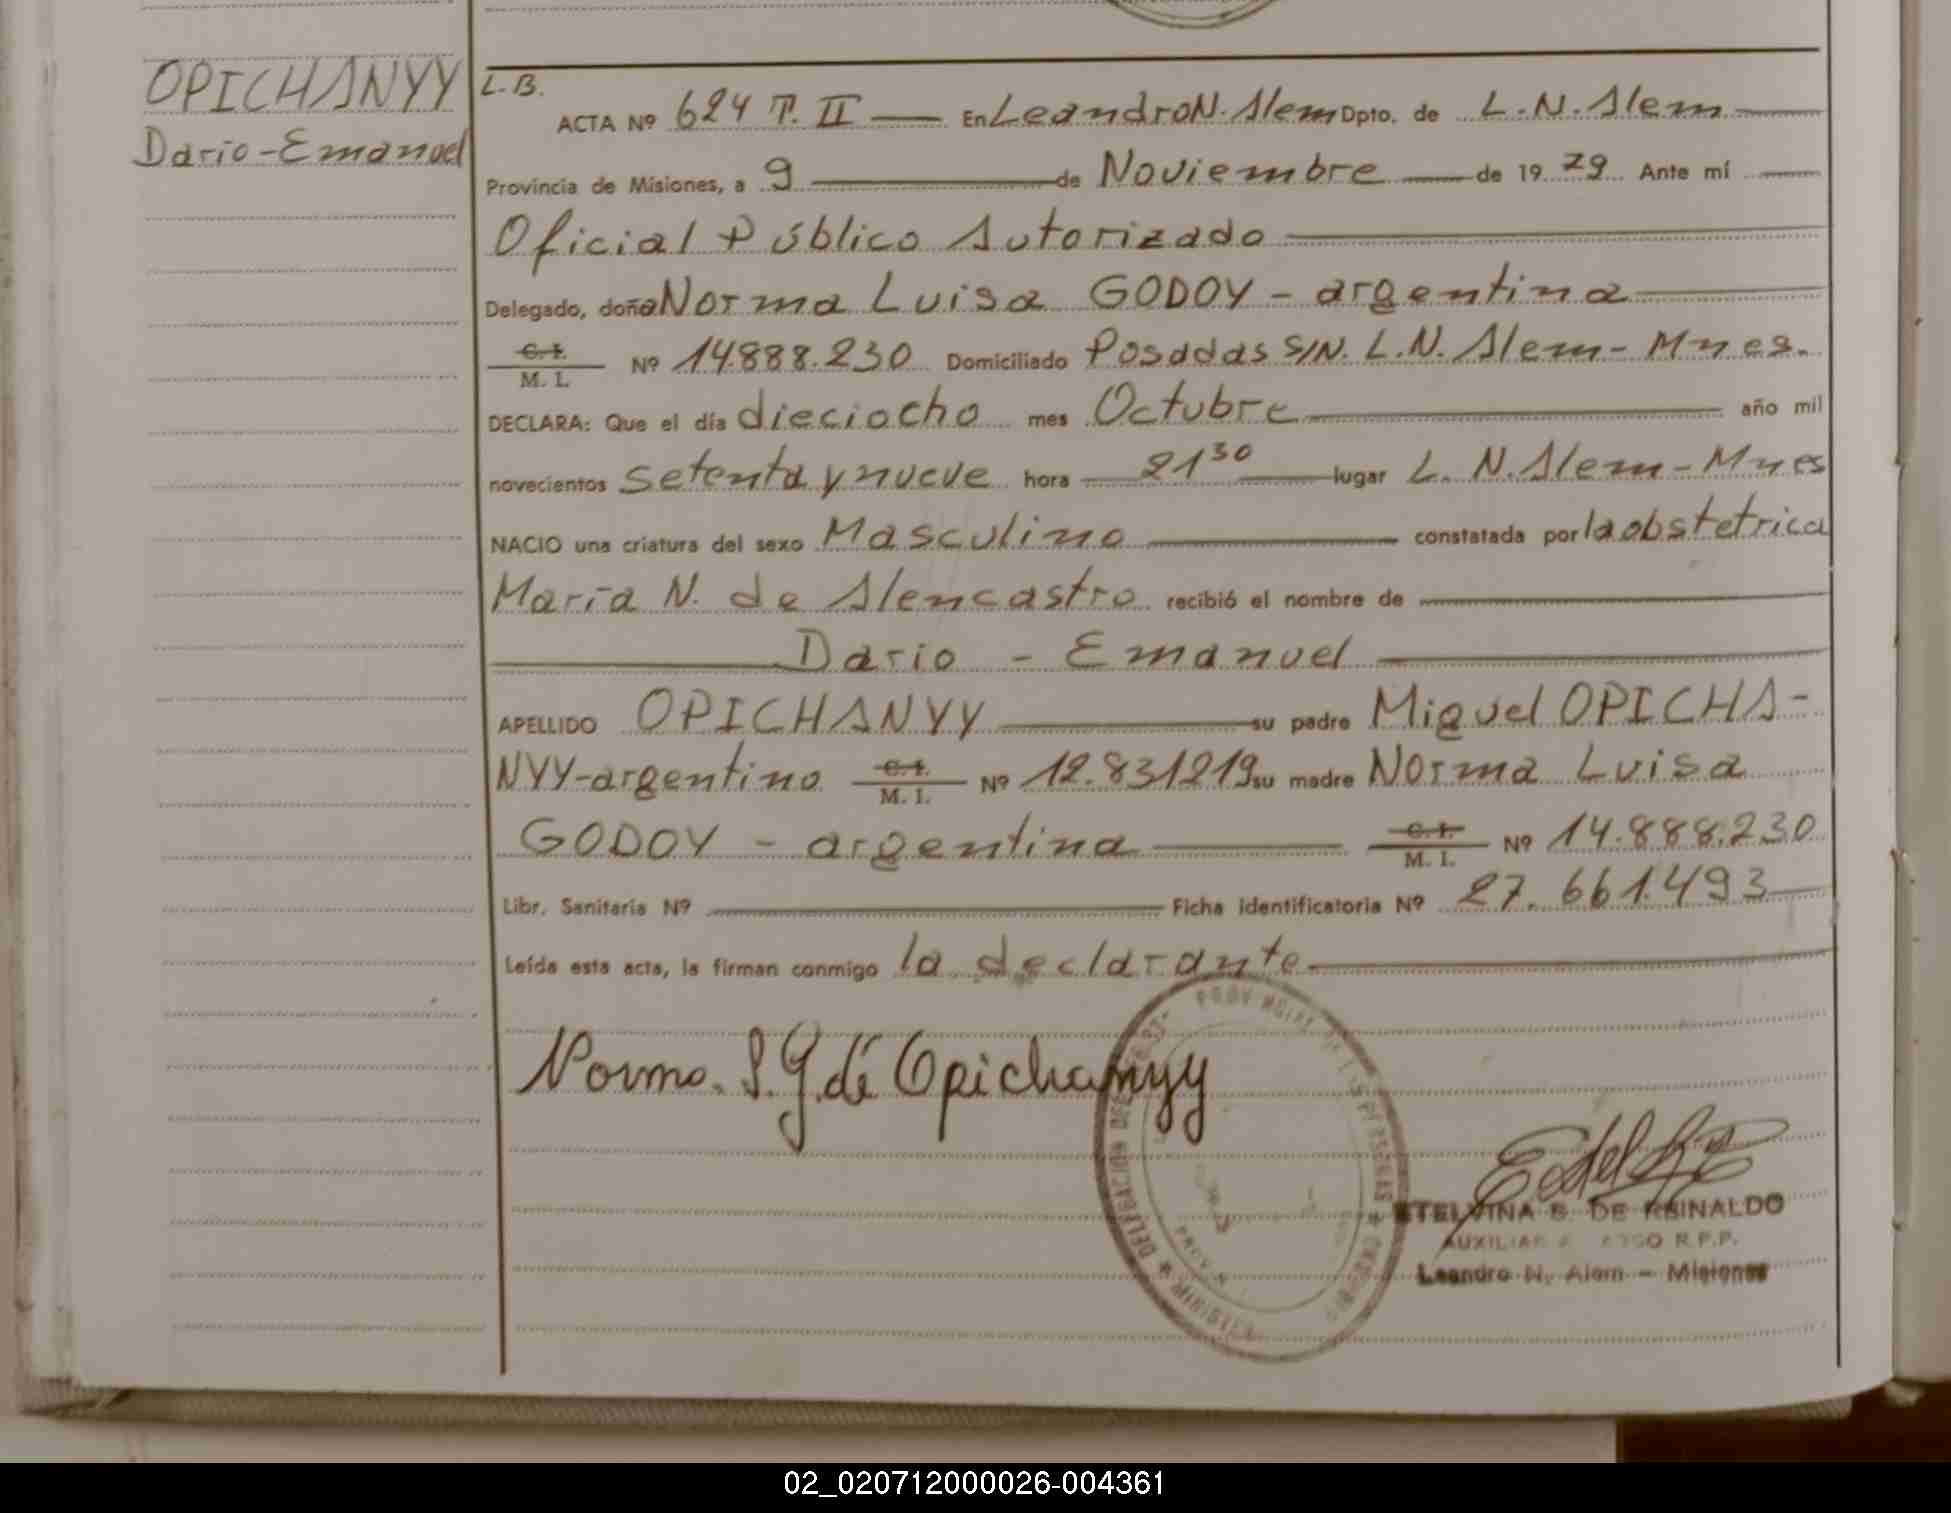 OPICHANYY
Dario-Emanuel
L.B.
ACTA Nº 624 T. II En Leandro N. Alem Dpto. de L. N. Alem
Provincia de Misiones, a 9 de Noviembre de 19 79 Ante mí
Oficial Público Autorizado
Delegado, doña Norma Luisa GODOY - argentina
C. I. M. I. Nº 14.888.230 Domiciliado Posadas S/N. L.N. Alem - Mnes.
DECLARA: Que el día dieciocho mes Octubre año mil
novecientos setenta y nueve hora 21 30 lugar L. N. Alem - Mnes
NACIO una criatura del sexo Masculino constatada por la obstetrica
María N. de Alencastro recibió el nombre de
Dario - Emanuel
APELLIDO OPICHANYY su padre Miguel OPICHA-
NYY-argentino C. I. M. I. Nº 12.831219 su madre Norma Luisa
GODOY - argentina C. I. M. I. Nº 14.888.230
Libr. Sanitaria Nº Ficha identificatoria Nº 27.661.493
Leída esta acta, la firman conmigo la declarante
Norma. L. G. de Opichanyy
ETELVINA B. DE REINALDO
AUXILIAR R.P.P.
Leandro N. Alem - Misiones
02_020712000026-004361